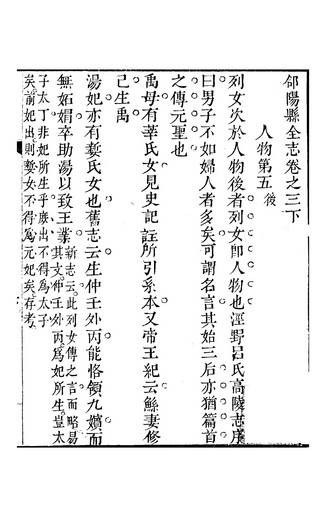 郃陽縣全志卷之三下
人物第五後
列女次於人物後者列女卽人物也涇野呂氏高陵志序
曰男子不如婦人者多矣可謂名言其始三后亦猶篇首
之傳元聖也
禹母有莘氏女見史記註所引系本又帝王紀云鯀妻修
己生禹
湯妃亦有㜪氏女也舊志云生仲壬外丙能恪領九嬪而
無妬媢卒助湯以致王業新志云此列女傳之言而略易
其文仲壬外丙爲妃所生豈太
子太丁非妃所生乎庶出不得爲太子
矣前妃出則㜪女不得爲元妃矣存考